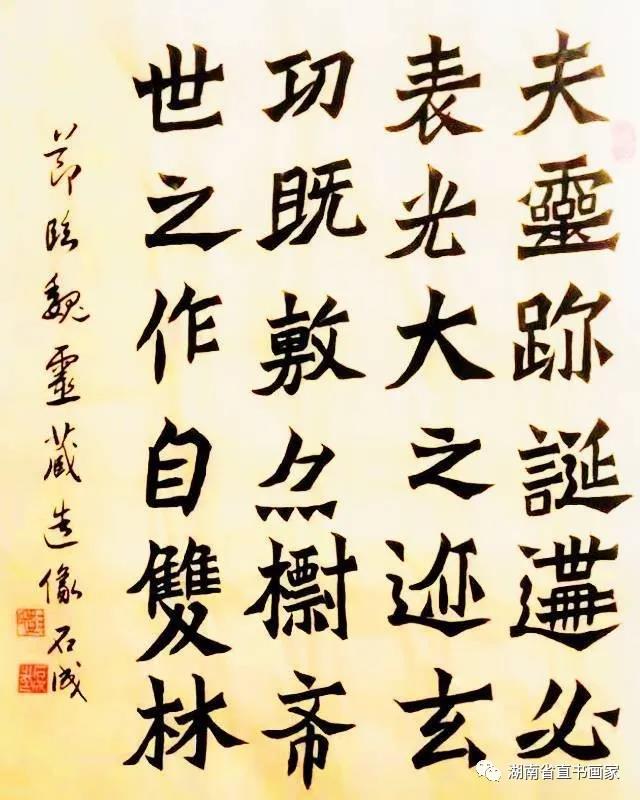 夫靈跡誕遘必
表光大之迹玄
功既敷亦標希
世之作自雙林
節臨魏靈藏造像 石成
湖南省直书画家